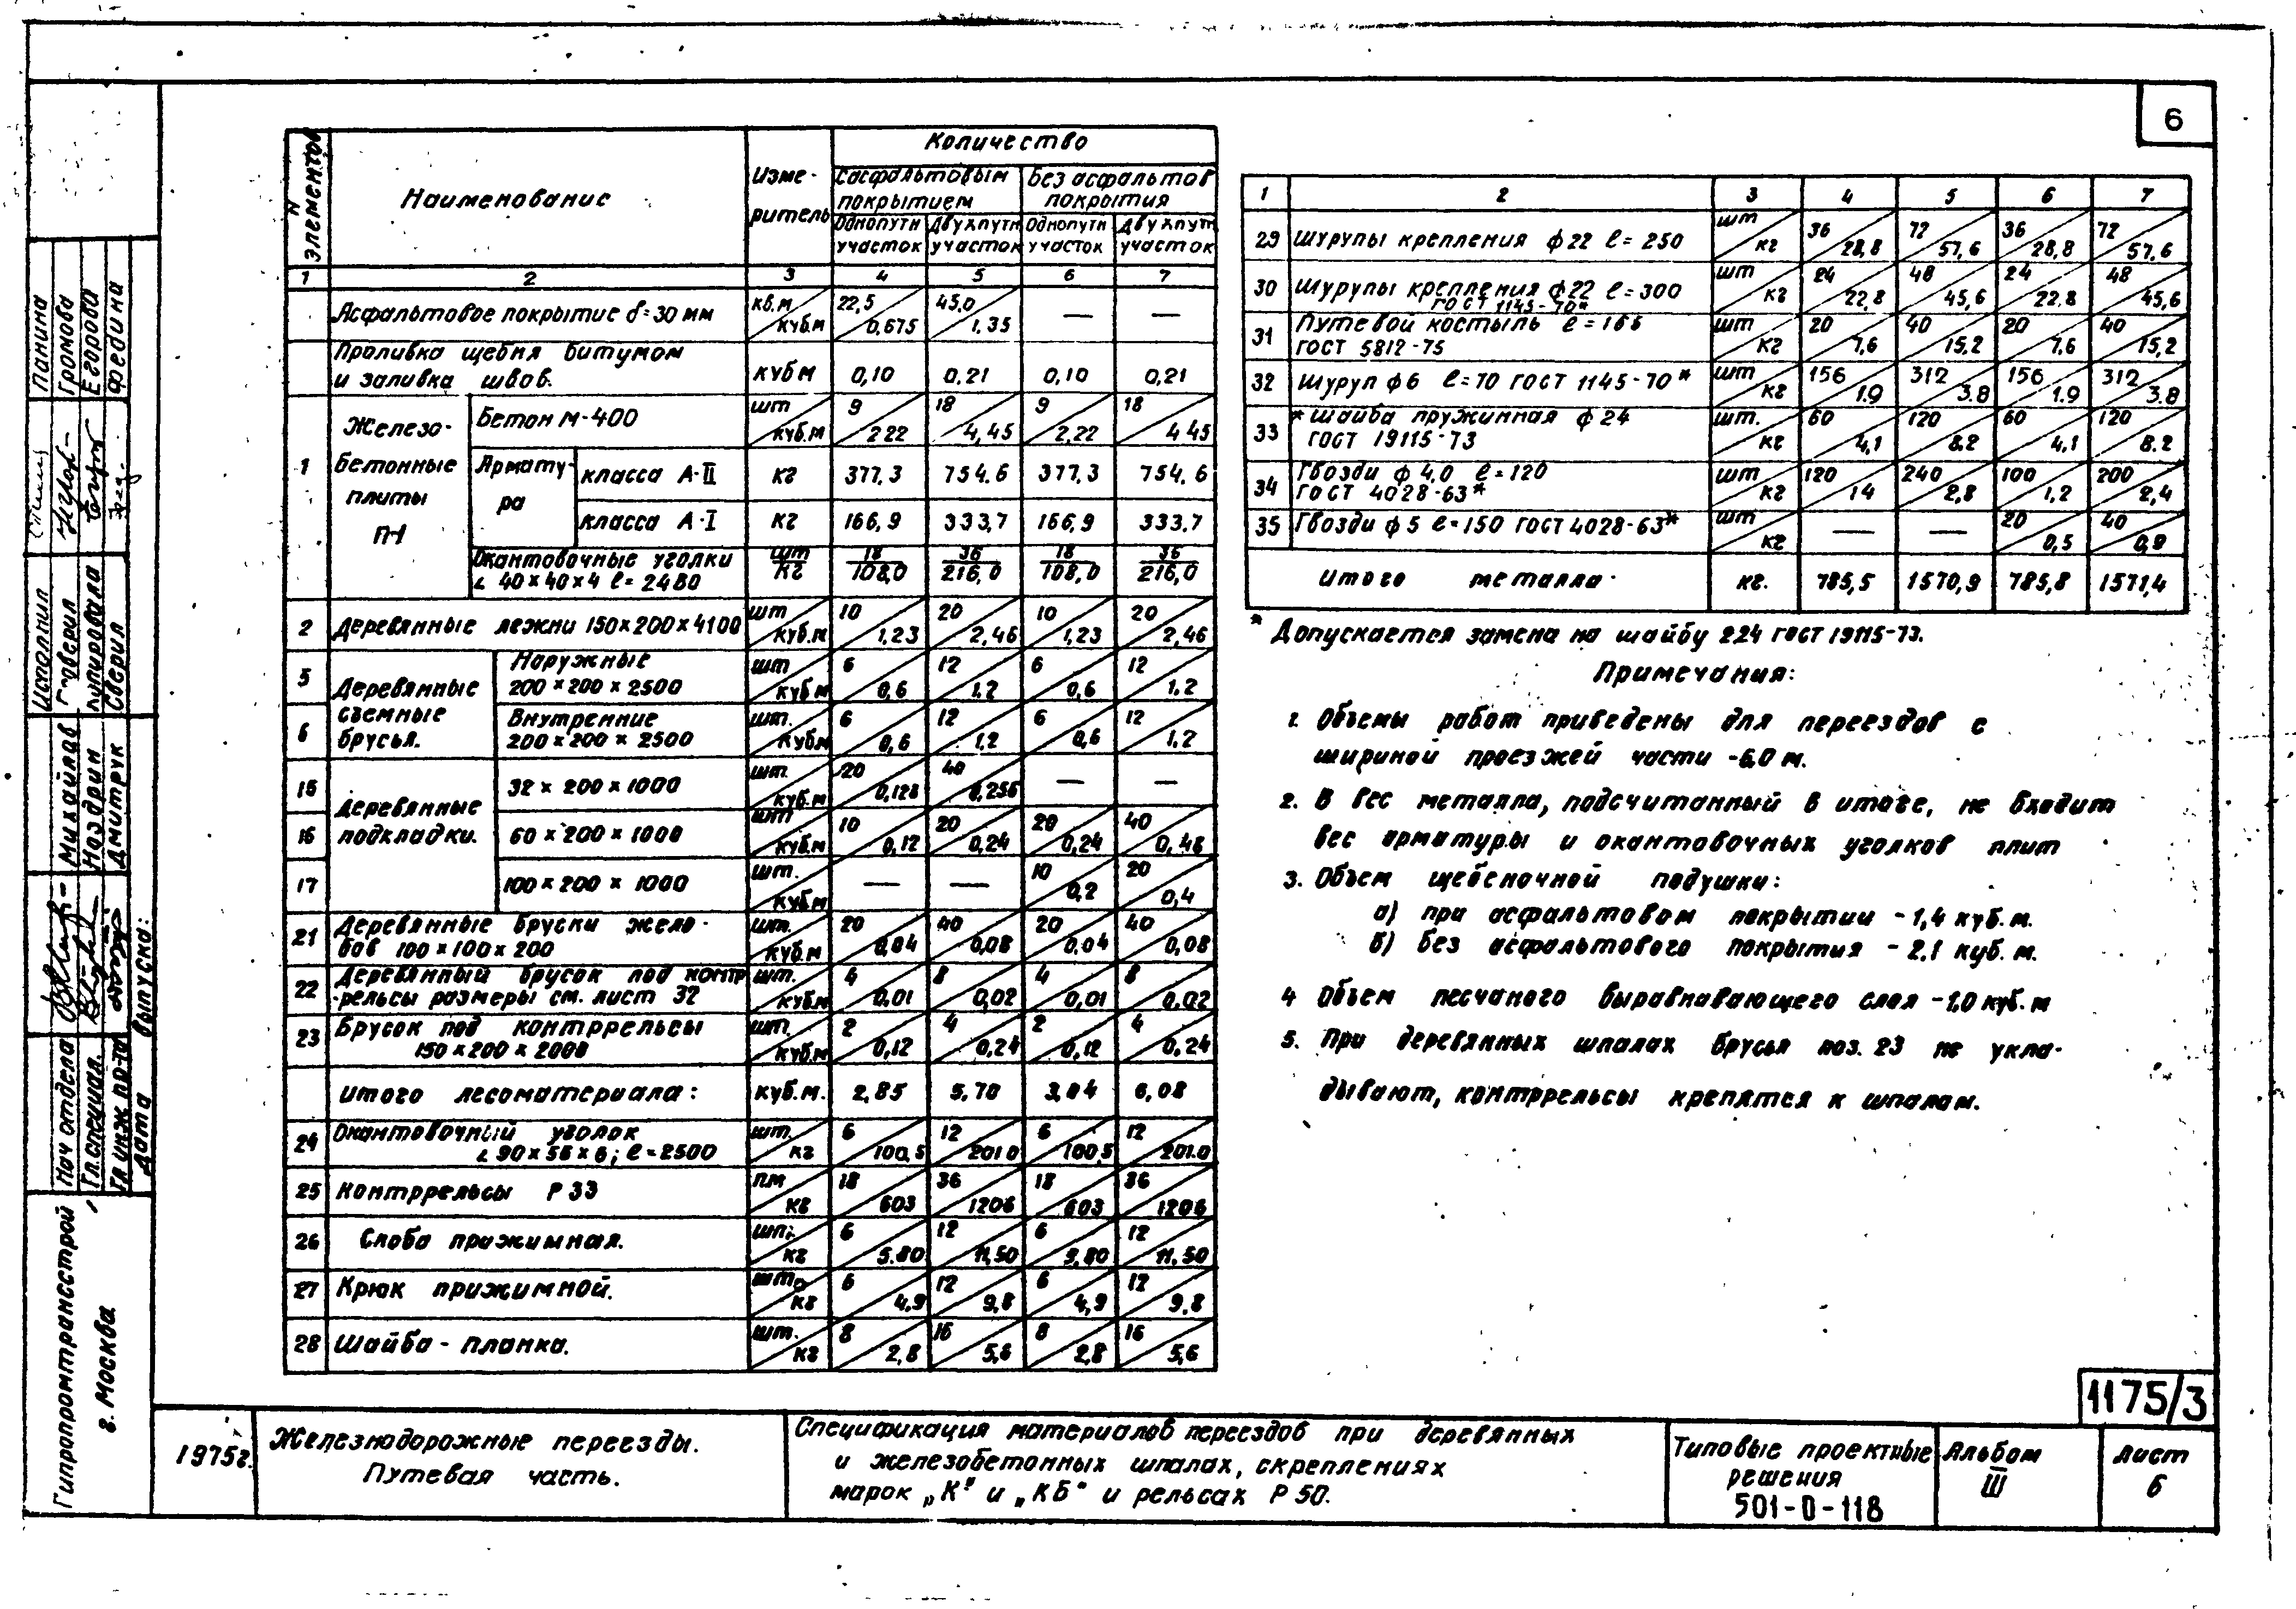 6
N элементов
Наименование
Измеритель
Количество
С асфальтовым покрытием
Без асфальтов покрытия
Однопутн участок
Двухпутн участок
Однопутн участок
Двухпутн участок
1 2 3 4 5 6 7
Асфальтовое покрытие δ=30 мм кв.м/куб.м 22,5/0,675 45,0/1,35 — —
Проливка щебня битумом
и заливка швов. куб м 0,10 0,21 0,10 0,21
1 Железобетонные плиты П-1
Бетон М-400 шт/куб.м 9/222 18/4,45 9/2,22 18/4 45
Арматура класса А-II кг 377,3 754,6 377,3 754,6
класса А-I кг 166,9 333,7 166,9 333.7
Окантовочные уголки
∟ 40×40×4 ℓ=2480 шт/кг 18/108,0 36/216,0 18/108,0 36/216,0
2 Деревянные лежни 150×200×4100 шт/куб.м 10/1,23 20/2,46 10/1,23 20/2,46
Деревянные съемные брусья.
5 Наружные
200×200×2500 шт/куб.м 6/0,6 12/1,2 6/0,6 12/1,2
6 Внутренние
200×200×2500 шт./куб.м 6/0,6 12/1,2 6/0,6 12/1,2
Деревянные подкладки.
15 32×200×1000 шт./куб.м 20/0,128 40/0,256 — —
16 60×200×1000 шт/куб.м 10/0,12 20/0,24 20/0,24 40/0,48
17 100×200×1000 шт./куб.м — — 10/0,2 20/0,4
21 Деревянные бруски жело-
бов 100×100×200 шт./куб.м 20/0,04 40/0,08 20/0,04 40/0,08
22 Деревянный брусок под контр
-рельсы размеры см. лист 32 шт./куб.м 4/0,01 8/0,02 4/0,01 8/0,02
23 Брусок под контррельсы
150×200×2000 шт./куб.м 2/0,12 4/0,24 2/0,12 4/0,24
Итого лесоматериала: куб.м. 2,85 5,70 3,04 6,08
24 Окантовочный уголок
∟90×56×6; ℓ=2500 шт./кг 6/100,5 12/201 0 6/100,5 12/201.0
25 Контррельсы Р 33 п.м/кг 18/603 36/1206 18/603 36/1206
26 Скоба прижимная. шт./кг 6/5.80 12/11,50 6/5,80 12/11,50
27 Крюк прижимной. шт./кг 6/4,9 12/9,8 6/4,9 12/9,8
28 Шайба-планка. шт./кг 8/2,8 16/5,6 8/2,8 16/5,6
1 2 3 4 5 6 7
29 Шурупы крепления ф22 ℓ=250 шт/кг 36/28,8 72/57,6 36/28,8 72/57,6
30 Шурупы крепления ф22 ℓ=300
ГОСТ 1145-70* шт/кг 24/22,8 48/45,6 24/22,8 48/45,6
31 Путевой костыль ℓ=165
ГОСТ 5812-75 шт/кг 20/7,6 40/15,2 20/7,6 40/15,2
32 Шуруп ф6 ℓ=70 ГОСТ 1145-70* шт/кг 156/1.9 312/3.8 156/1.9 312/3.8
33 * Шайба пружинная ф24
ГОСТ 19115-73 шт./кг 60/4,1 120/8.2 60/4,1 120/8.2
34 Гвозди ф4,0 ℓ=120
ГОСТ 4028-63* шт/кг 120/1 4 240/2,8 100/1,2 200/2,4
35 Гвозди ф5 ℓ=150 ГОСТ 4028-63* шт/кг — — 20/0,5 40/0,9
Итого металла· кг. 785,5 1570,9 785,8 1571,4
* Допускается замена на шайбу 2 24 ГОСТ 19115-73.
Примечания:
1. Объемы работ приведены для переездов с
шириной проезжей части -6,0 м.
2. В вес металла, подсчитанный в итоге, не входит
вес арматуры и окантовочных уголков плит
3. Объем щебеночной подушки:
а) при асфальтовом покрытии -1,4 куб.м.
б) без асфальтового покрытия - 2.1 куб.м.
4 Объем песчаного выравнивающего слоя -1,0 куб.м
5. При деревянных шпалах брусья поз. 23 не укла-
дывают, контррельсы крепятся к шпалам.
1175/3
1975г.
Железнодорожные переезды.
Путевая часть.
Спецификация материалов переездов при деревянных
и железобетонных шпалах, скреплениях
марок „К" и „КБ" и рельсах Р 50.
Типовые проектные
решения
501-0-118
Альбом
III
Лист
6
Гипропромтрансстрой
г. Москва
Нач отдела
Гл. специал.
Гл инж пр-та
Дата выпуска:
Михайлов
Ноздрин
Дмитрук
Исполнил
Проверил
Копировала
Сверил
Панина
Громова
Егорова
Федина